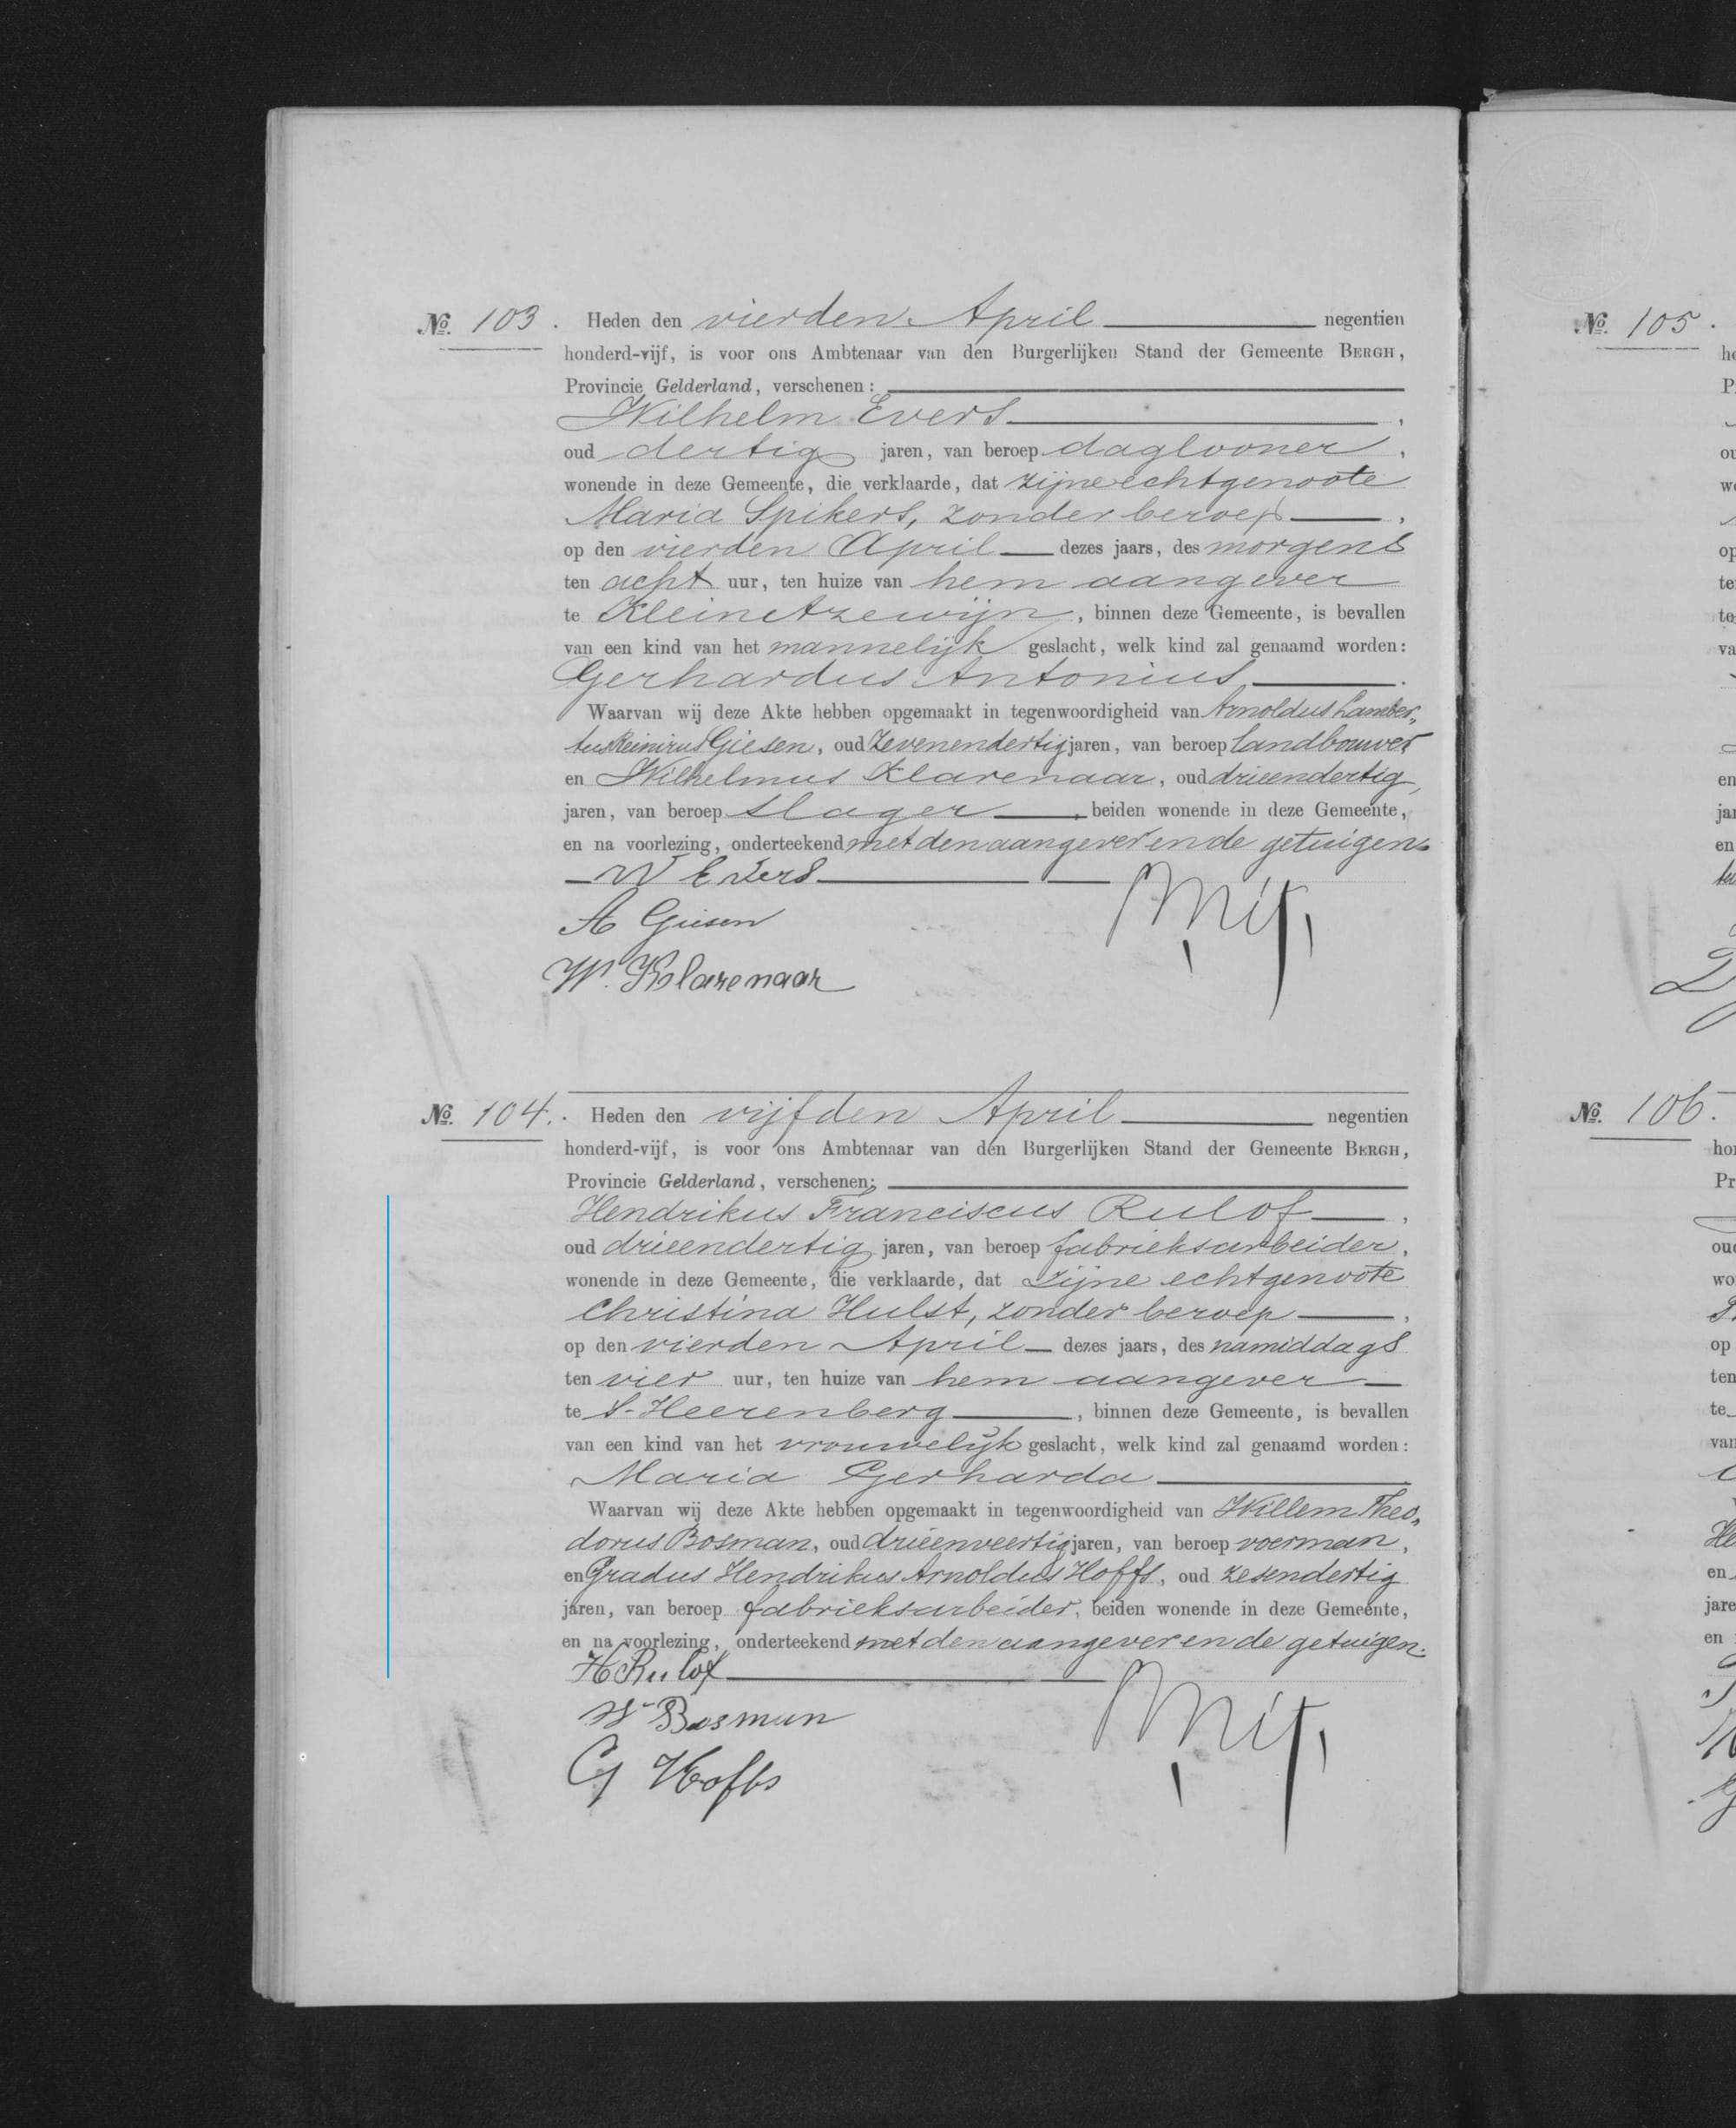 No. 103. Heden den vierden April negentien
honderd-vijf, is voor ons Ambtenaar van den Burgerlijken Stand der Gemeente BERGH,
Provincie Gelderland, verschenen:
Wilhelm Evers,
oud dertig jaren, van beroep daglooner,
wonende in deze Gemeente, die verklaarde, dat zijne echtgenoote
Maria Spikers, zonder beroep,
op den vierden April dezes jaars, des morgens
ten acht uur, ten huize van hem aangever
te Klein Azewijn, binnen deze Gemeente, is bevallen
van een kind van het mannelijk geslacht, welk kind zal genaamd worden:
Gerhardus Antonius.
Waarvan wij deze Akte hebben opgemaakt in tegenwoordigheid van Arnoldus Lamber„
tus Reinirus Giesen, oud zevenendertig jaren, van beroep landbouwer
en Wilhelmus Klarenaar, oud drieendertig,
jaren, van beroep slager, beiden wonende in deze Gemeente,
en na voorlezing, onderteekend met den aangever en de getuigen.
W Evers
A Giesen
W. Klarenaar
No. 104. Heden den vijfden April negentien
honderd-vijf, is voor ons Ambtenaar van den Burgerlijken Stand der Gemeente BERGH,
Provincie Gelderland, verschenen:
Hendrikus Franciscus Rulof,
oud drieendertig jaren, van beroep fabrieksarbeider,
wonende in deze Gemeente, die verklaarde, dat zijne echtgenoote
Christina Hulst, zonder beroep,
op den vierden April dezes jaars, des namiddags
ten vier uur, ten huize van hem aangever
te S-Heerenberg, binnen deze Gemeente, is bevallen
van een kind van het vrouwelijk geslacht, welk kind zal genaamd worden:
Maria Gerharda
Waarvan wij deze Akte hebben opgemaakt in tegenwoordigheid van Willem Theo„
dorus Bosman, oud drieenveertig jaren, van beroep voerman,
en Gradus Hendrikus Arnoldus Hoffs, oud zesendertig
jaren, van beroep fabrieksarbeider, beiden wonende in deze Gemeente,
en na voorlezing, onderteekend met den aangever en de getuigen.
H Rulof
W Bosman
G Hoffs
No. 105.
No. 106.